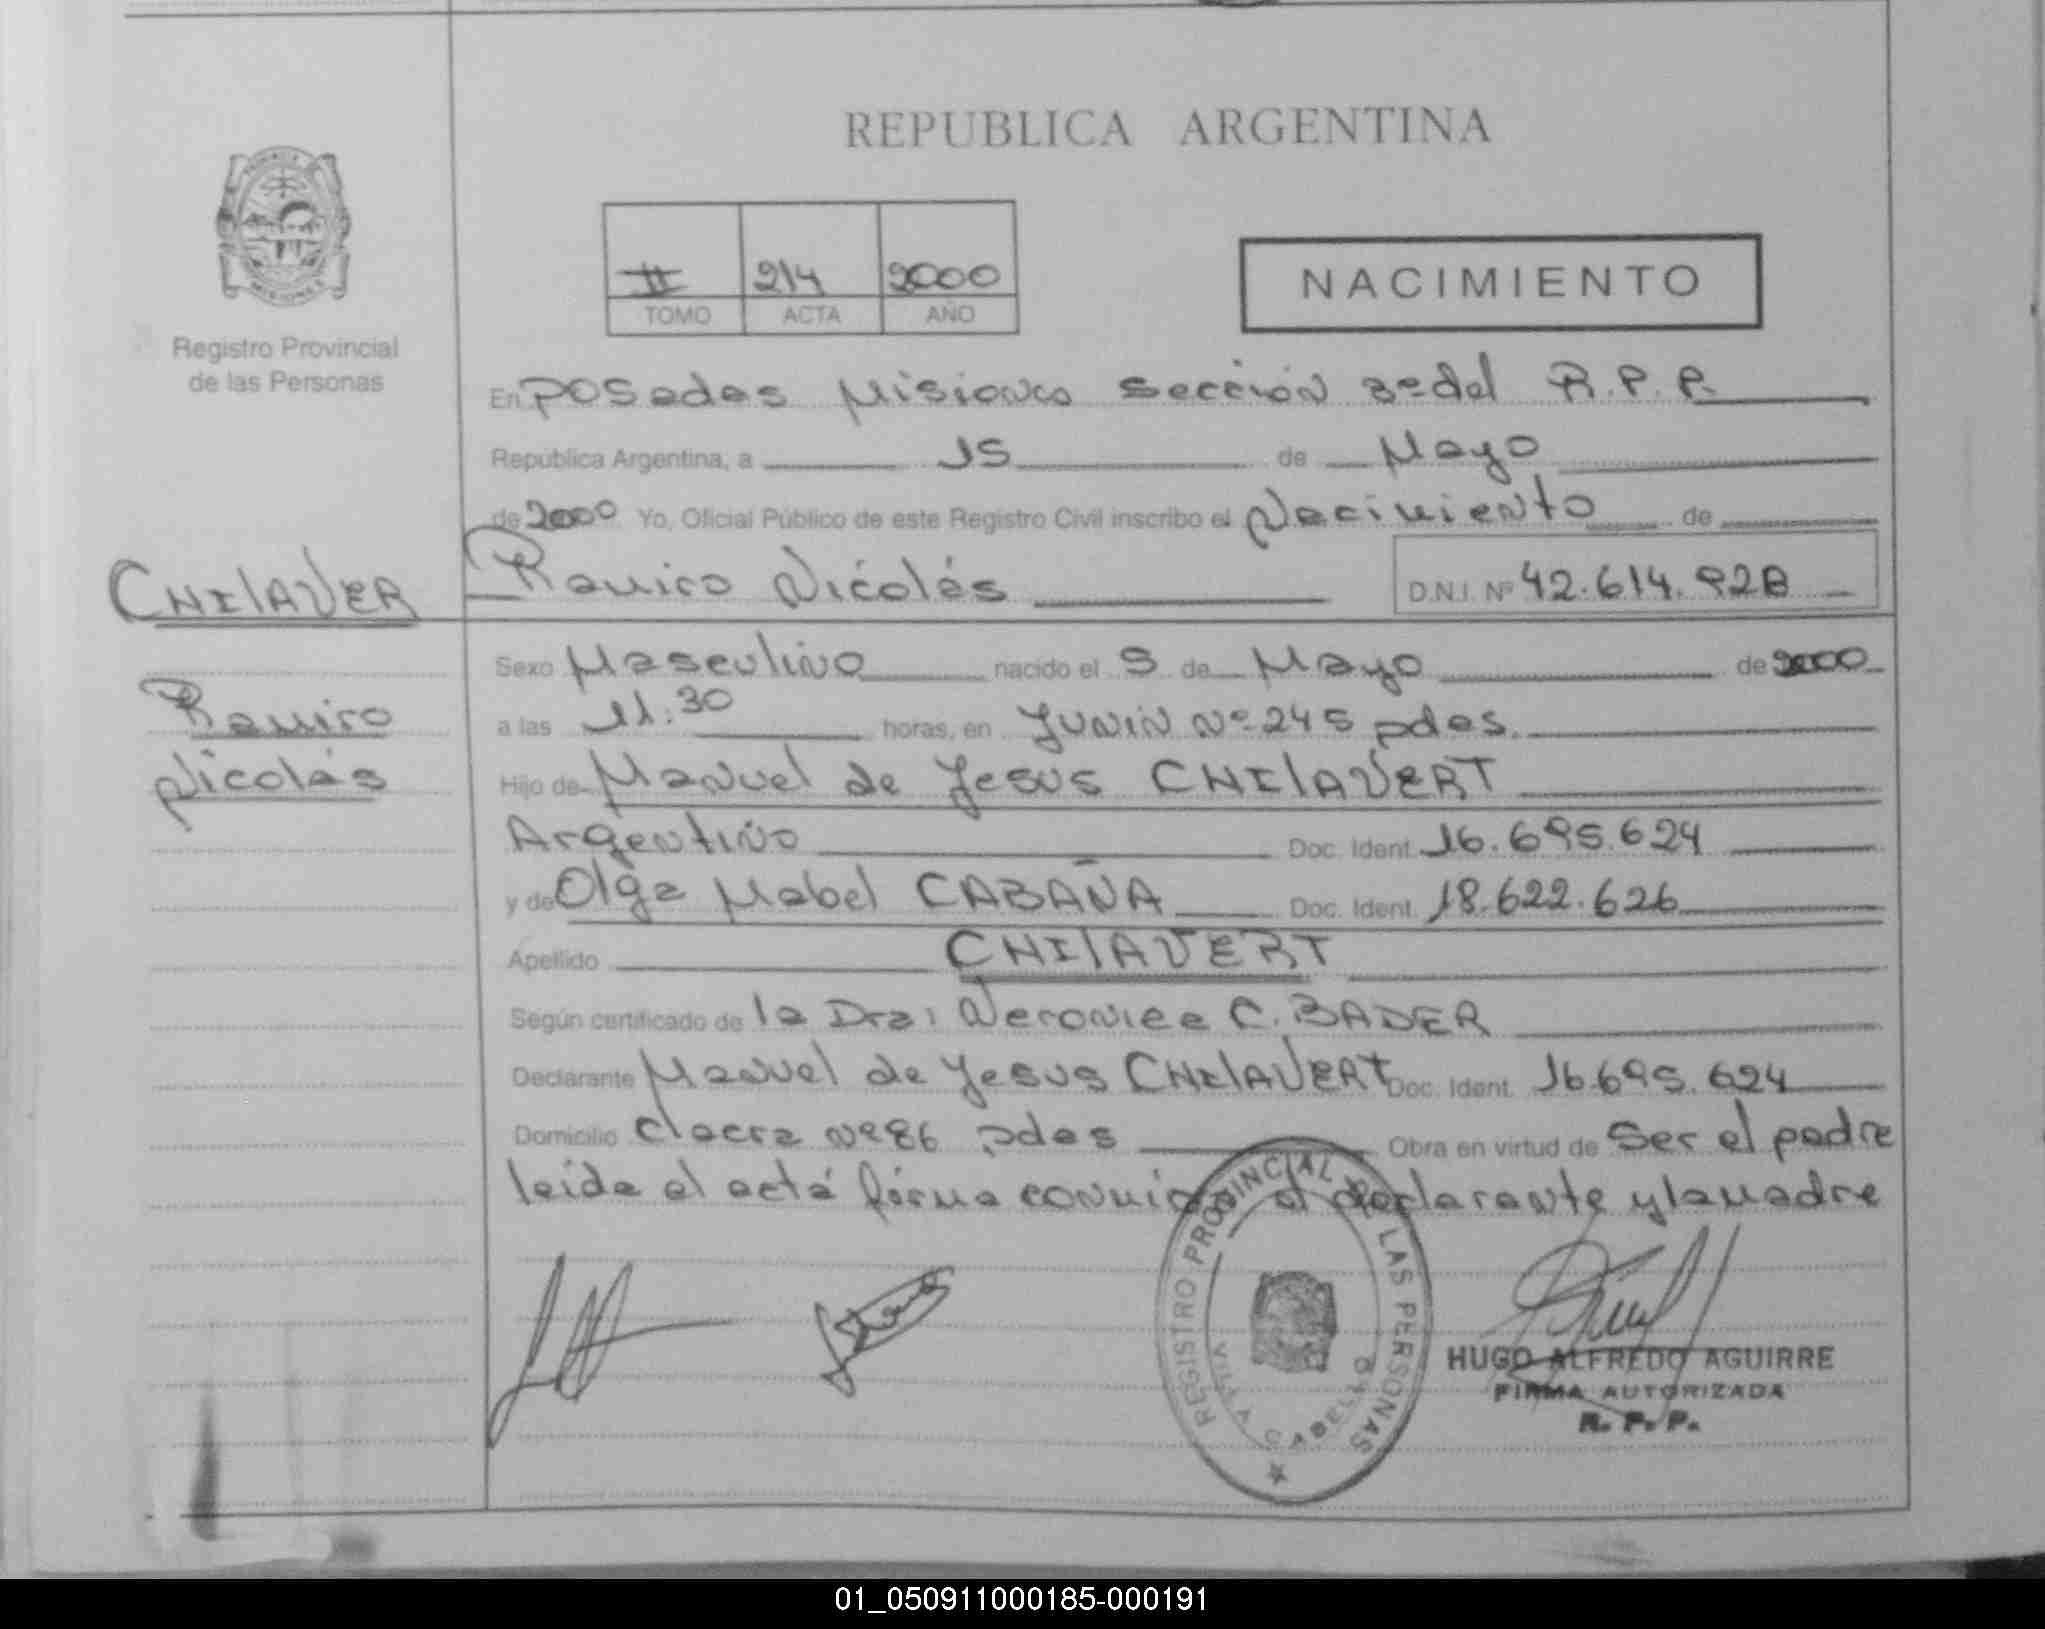 REPUBLICA ARGENTINA
II 214 2000
TOMO ACTA AÑO
NACIMIENTO
Registro Provincial
de las Personas
En Posadas Misiones sección 3º del R.P.R.
República Argentina, a 15 de Mayo
de 2000 Yo, Oficial Público de este Registro Civil inscribo el Nacimiento de
CHIlAVER
Ramiro
Nicolás
Ramiro Nicolás D.N.I. Nº 42.614.928
Sexo Masculino nacido el 5 de Mayo de 2000
a las 11:30 horas, en Junin Nº 245 pdas.
Hijo de Manuel de Jesus CHIlAVERT
Argentino Doc. Ident. 16.695.624
y de Olga Mabel CABAÑA Doc. Ident. 18.622.626
Apellido CHIlAVERT
Según certificado de la Dra: Veronica C. BADER
Declarante Manuel de Jesus CHIlAVERT Doc. Ident. 16.695.624
Domicilio chacra Nº 86 pdas Obra en virtud de Ser el padre
leida el acta firma conmigo el declarante y la madre
REGISTRO PROVINCIAL DE LAS PERSONAS
VILLA CABELLO
HUGO ALFREDO AGUIRRE
FIRMA AUTORIZADA
R. P. P.
01_050911000185-000191